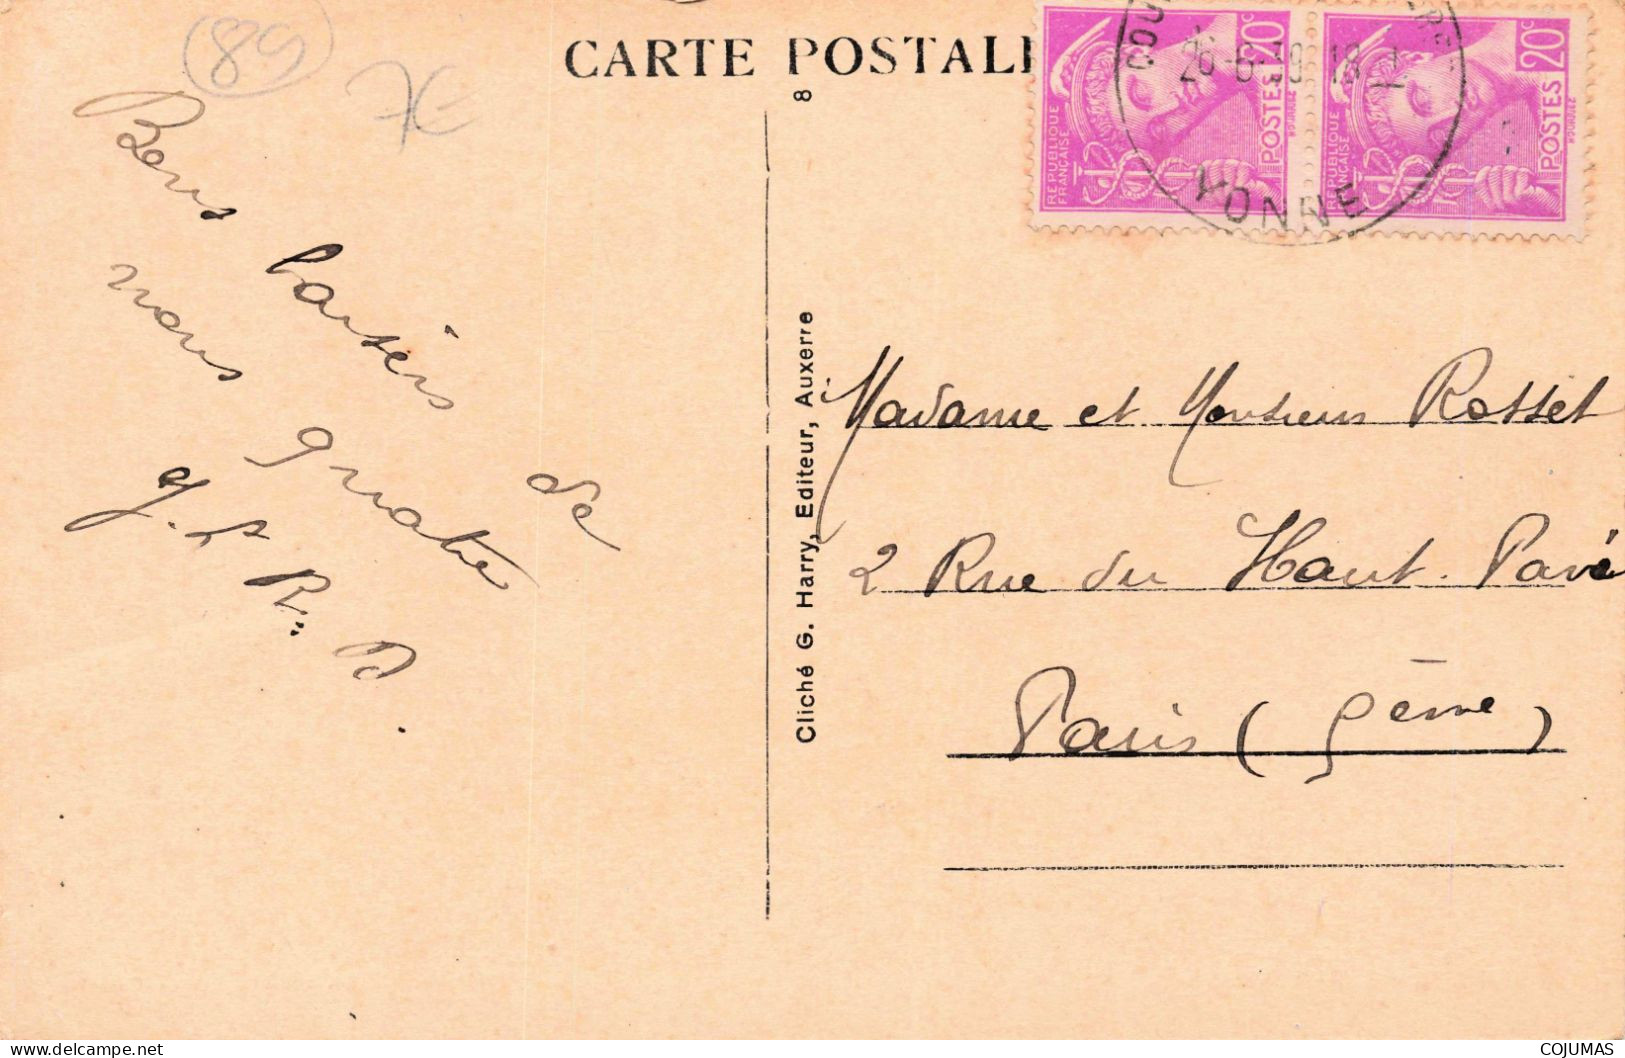 89
7€
CARTE POSTALE
8
20c
POSTES
REPUBLIQUE
FRANÇAISE
20c
POSTES
REPUBLIQUE
FRANÇAISE
26-6-39 18
YONNE
Bons baisers de
nous quatre
Cliché G. Harry, Editeur, Auxerre
Madame et Monsieur Rosset
2 Rue du Haut-Pavé
Paris (5ème)
COJUMAS
delcampe.net